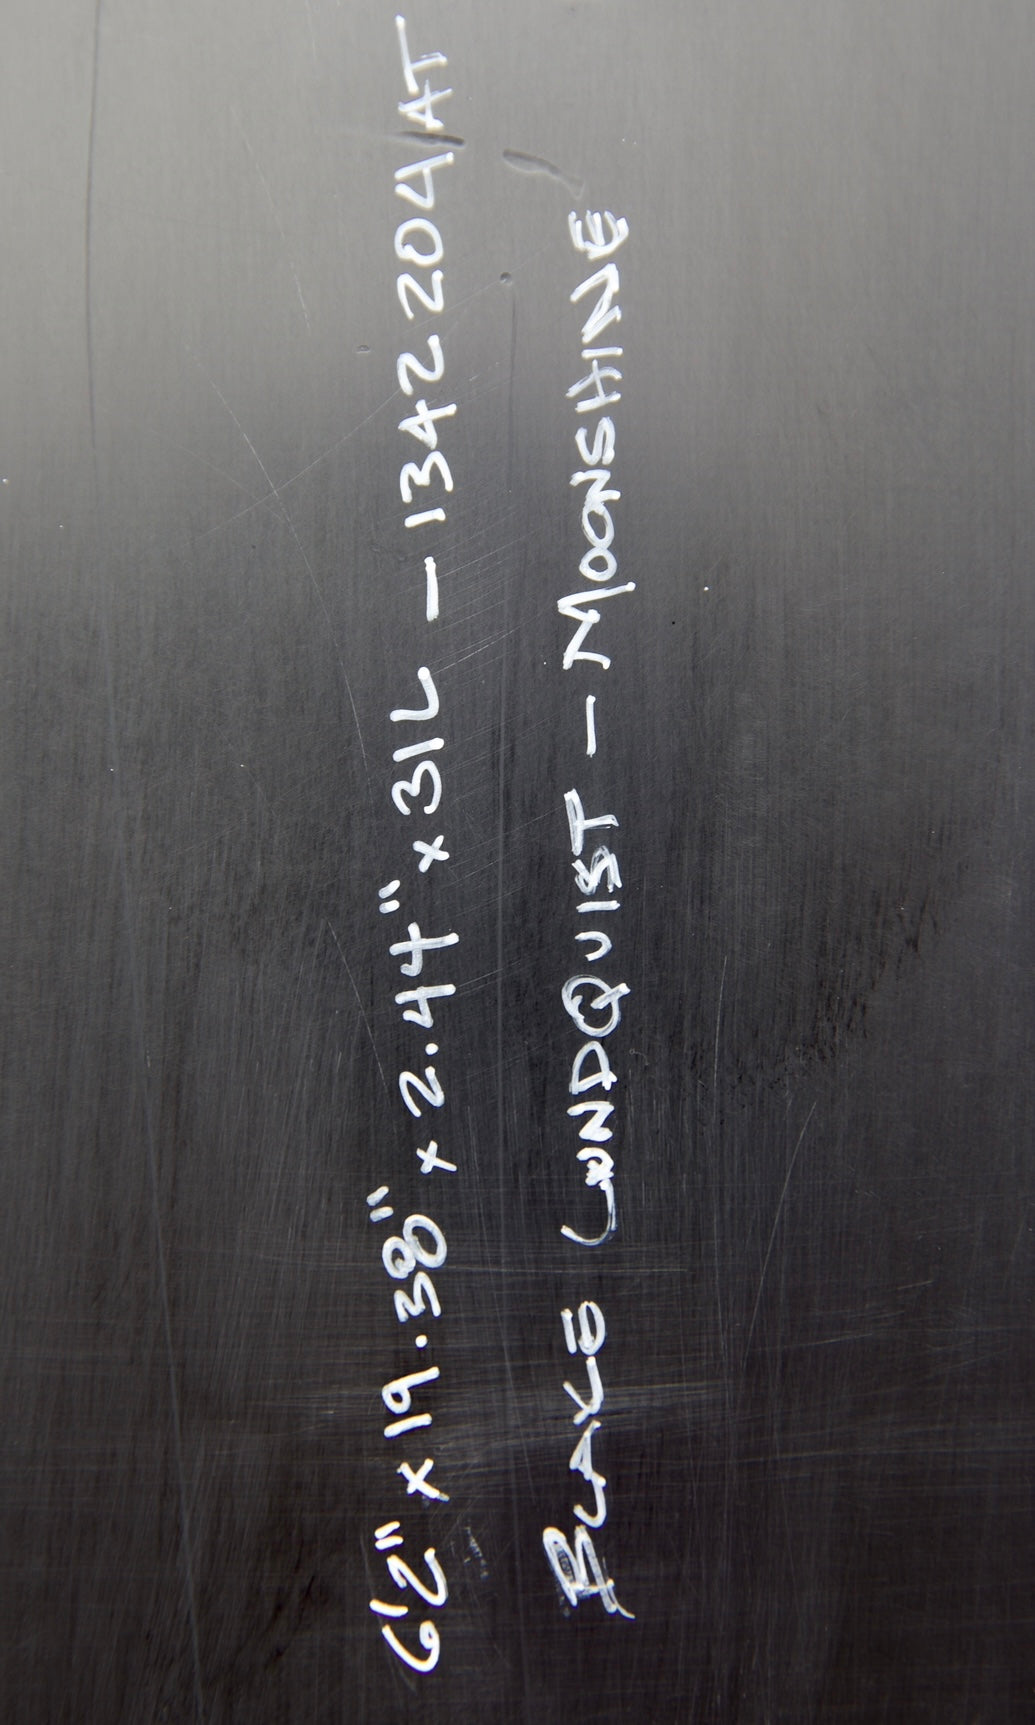 6'2" x 19.38" x 2.44" x 31L — 1342204/AT
BLAKE LUNDQUIST — MOONSHINE